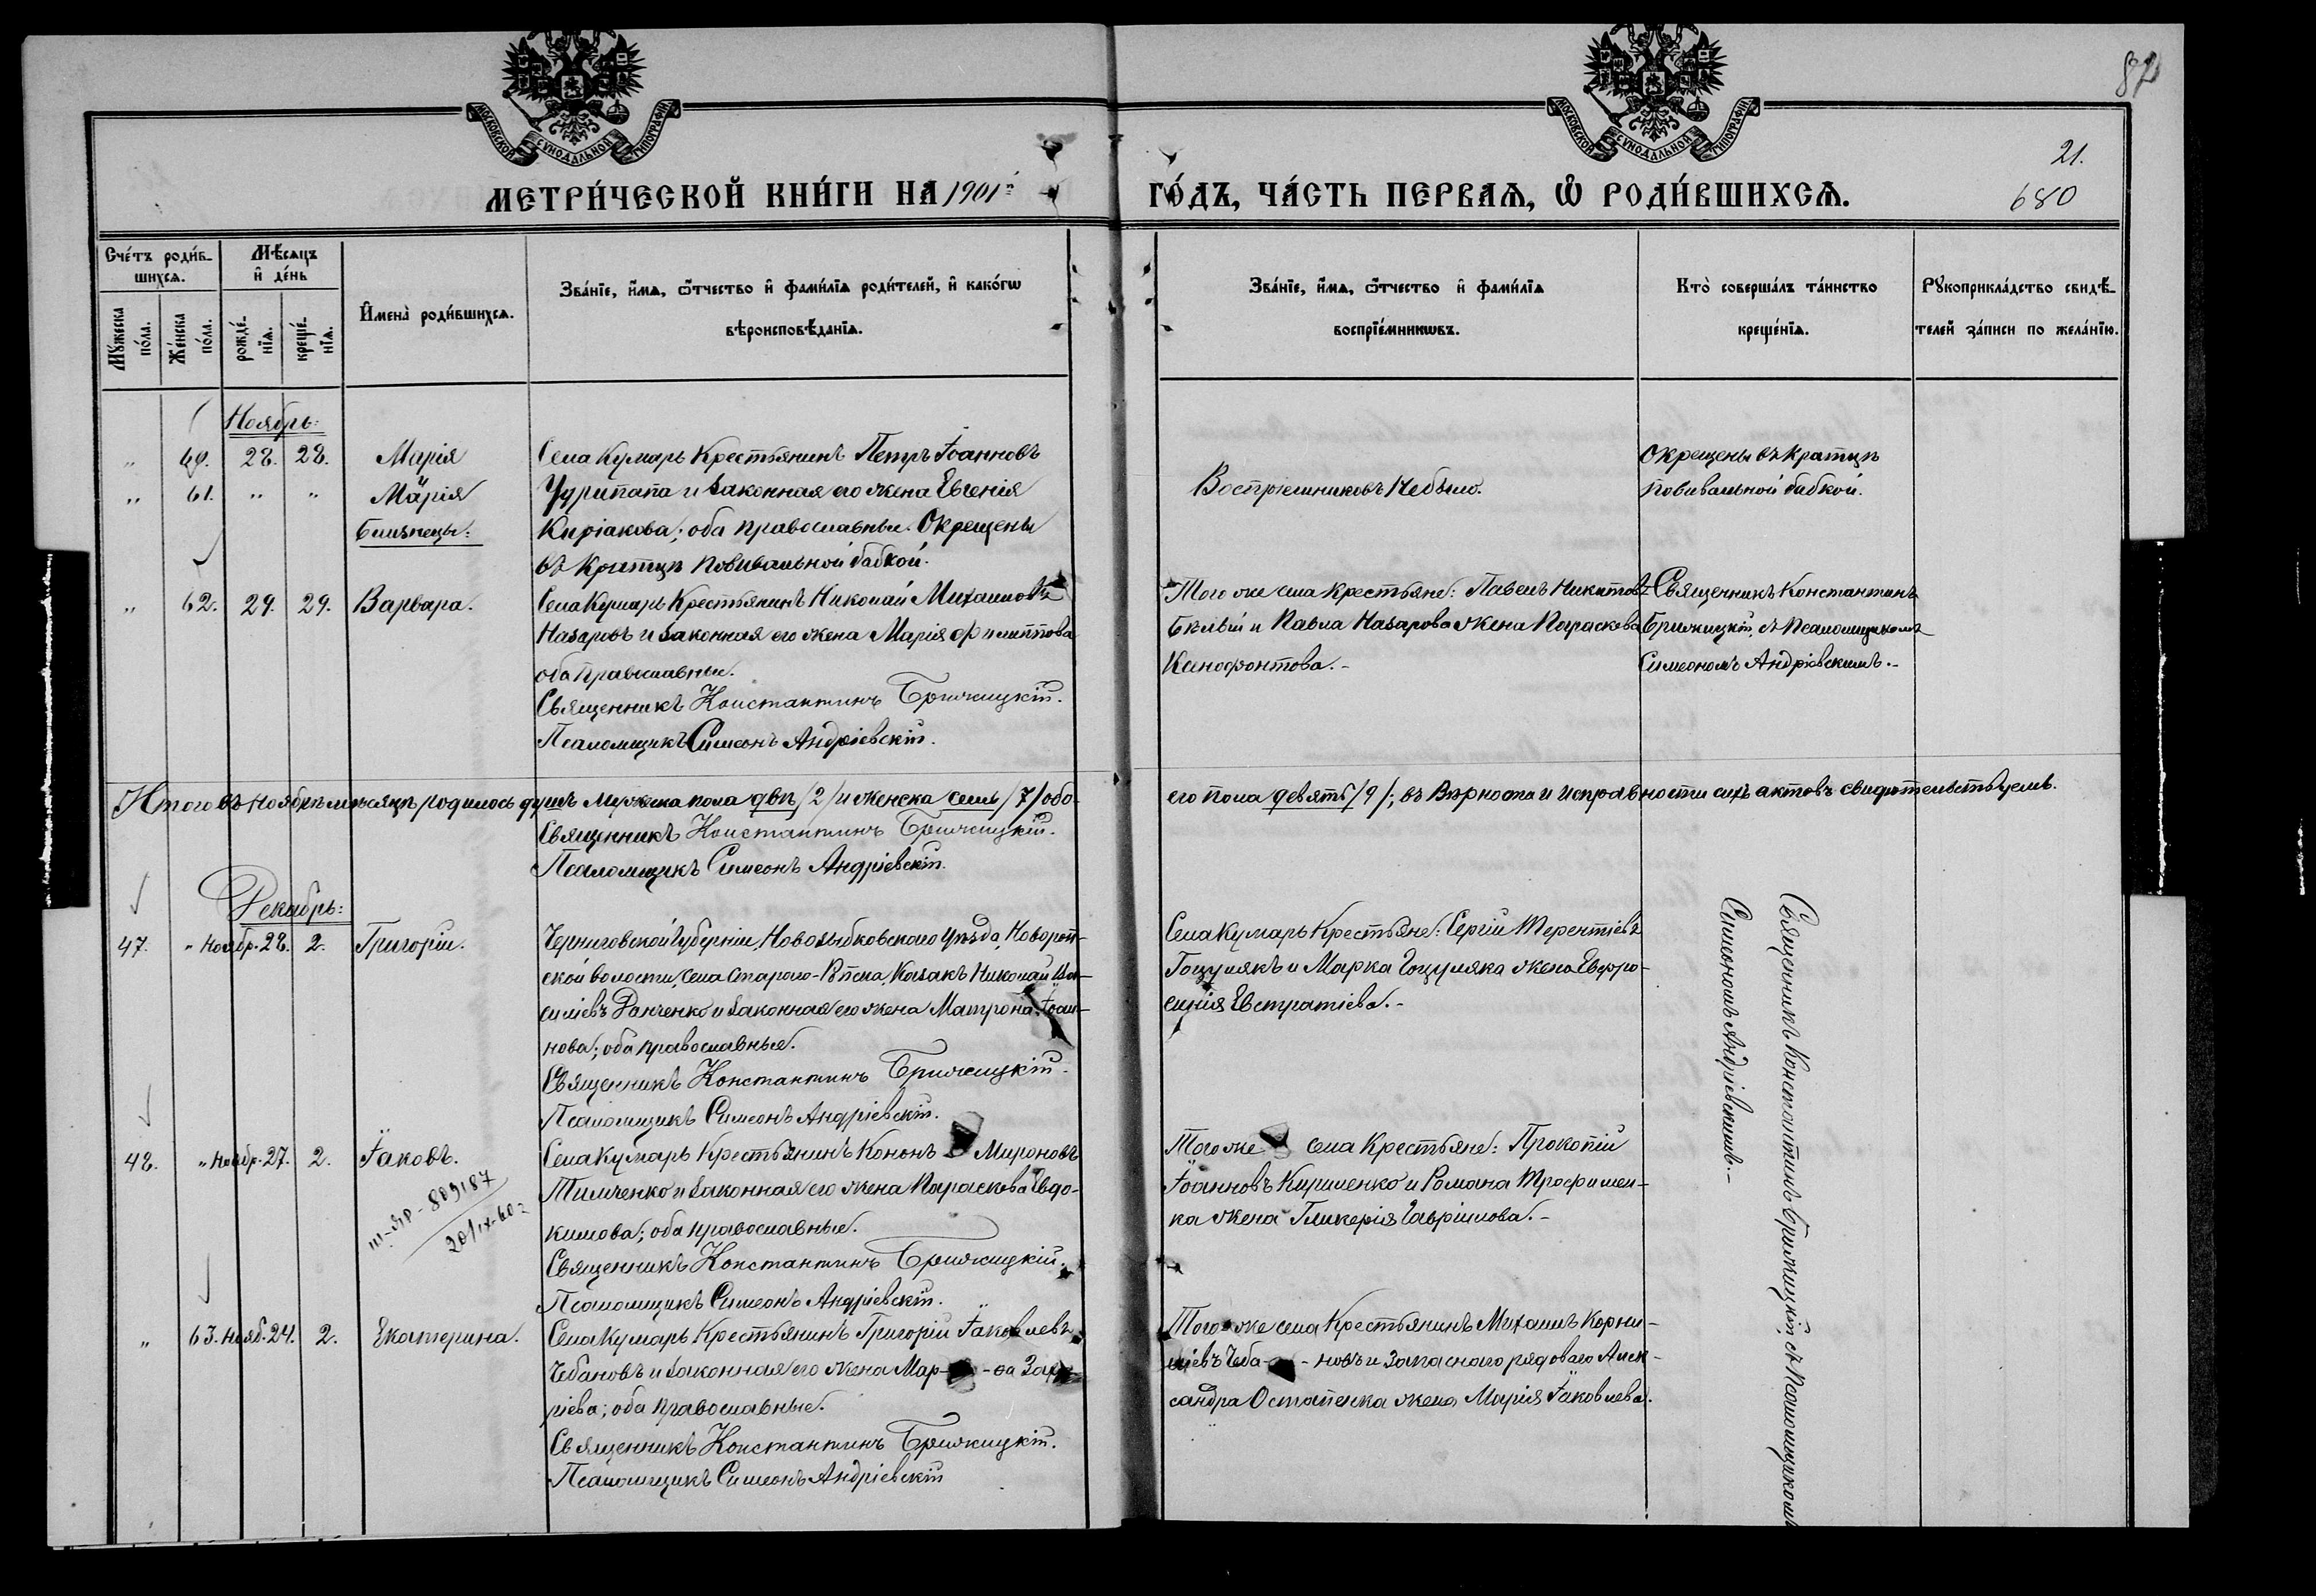 МОСКОВСКОЙ СѴНОДАЛЬНОЙ ТИПОГРАФІИ
МОСКОВСКОЙ СѴНОДАЛЬНОЙ ТИПОГРАФІИ
87
21.
680
МЕТРИ́ЧЕСКОЙ КНИ́ГИ НА 1901й ГО́ДЪ, ЧА́СТЬ ПЕРВАѦ, Ѡ҆ РОДИ́ВШИХСѦ.
Сче́тъ роди́в-
шихсѧ.
Мѣ́сѧцъ
и҆ де́нь
И҆мена̀ роди́вшихсѧ.
Зва́нїе, и҆́мѧ, ѻ҆́тчество и҆ фами́лїѧ роди́телей, и҆ како́гѡ
вѣроисповѣ́данїѧ.
Мꙋ́жеска по́ла.
Же́нска по́ла.
рожде́-нїѧ.
креще́-нїѧ.
Зва́нїе, и҆́мѧ, ѻ҆́тчество и҆ фами́лїѧ
воспрїе́мникѡвъ.
Кто̀ соверша́лъ та́инство
креще́нїѧ.
Рꙋкоприкла́дство свидѣ́-
телей за́писи по жела́нїю.
Ноябрь:
" 28. 28. Марія Села Кумарь Крестьянинъ Петръ Іоанновъ
" 61. " " Марія и законная его жена Евгенія
Близнецы: Киріакова; оба православные. Окрещены
въ Кратцѣ повивальной бабкой.
Воспріемниковъ небыло.
Окрещены въ Кратцѣ
повивальной бабкой.
" 62. 29. 29. Варвара. Села Кумарь Крестьянинъ Николай Михаиловъ
Назаровъ и законная его жена Марія Филиппова
оба православные.
Священникъ Константинъ Бричицкій.
Псаломщикъ Симеонъ Андріевскій.
Того же села Крестьяне: Павелъ Никитовъ
Бѣлый и Павла Назарова жена Параскева
Ксенофонтова.-
Священникъ Константинъ
Бричицкій, съ Псаломщикомъ
Симеономъ Андріевскимъ.-
Итого въ Ноябрѣ мѣсяцѣ родилось душъ Мужеска пола двѣ /2/ и женска семь /7/ обо-
его пола девять /9/; въ Вѣрности и исправности сихъ актовъ свидѣтельствуемъ.
Священникъ Константинъ Бричицкій.
Псаломщикъ Симеонъ Андріевскій.
Декабрь:
47. " Ноябр. 28. 2. Григорій. Черниговской Губерніи, Новозыбковского Уѣзда, Новороп-
ской волости, села Старого-Рѣпска, Козакъ Николай Ва-
силіевъ Данченко и законная его жена Матрона Іоан-
нова; оба православные.
Священникъ Константинъ Бричицкій.
Псаломщикъ Симеонъ Андріевскій.
Села Кумарь Крестьяне: Сергій Терентіевъ
Гоцулякъ и Марка Гоцуляка жена Евфро-
синія Евстратіева.-
48. " Ноябр. 27. 2. Іаковъ. Села Кумарь Крестьянинъ Кононъ - Мироновъ
Тимченко и законная его жена Параскева Евдо-
кимова; оба православные.
Священникъ Константинъ Бричицкій.
Псаломщикъ Симеонъ Андріевскій.
III-ЯР - 809187
20/IX-60г
Того же села Крестьяне: Прокопій
Іоанновъ Кириленко и Романа Трофимен-
ка жена Гликерія Гавріилова.-
" 63. Нояб. 24. 2. Екатерина. Села Кумарь Крестьянинъ Григорій Іаковлевъ
Чебановъ и законная его жена Мар- - Заха-
ріева; оба православные.
Священникъ Константинъ Бричицкій.
Псаломщикъ Симеонъ Андріевскій
Того же села Крестьянинъ Михаилъ Корни-
ліевъ Чеба- - новъ и запасного рядового Алек-
сандра Остапенка жена Марія Іаковлева.
Священникъ Константинъ Бричицкій съ Псаломщикомъ
Симеономъ Андріевскимъ.-